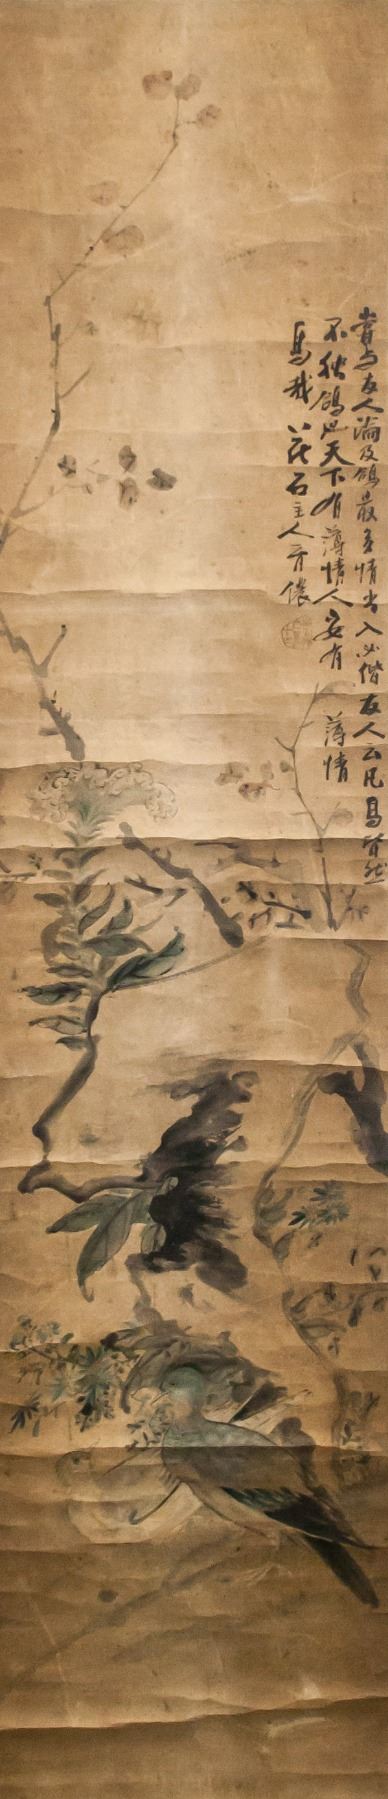 嘗与友人論及鴿最多情出入必偕友人云凡鳥皆然
不獨鴿也天下有薄情人安有薄情
鳥哉 花石主人方儂